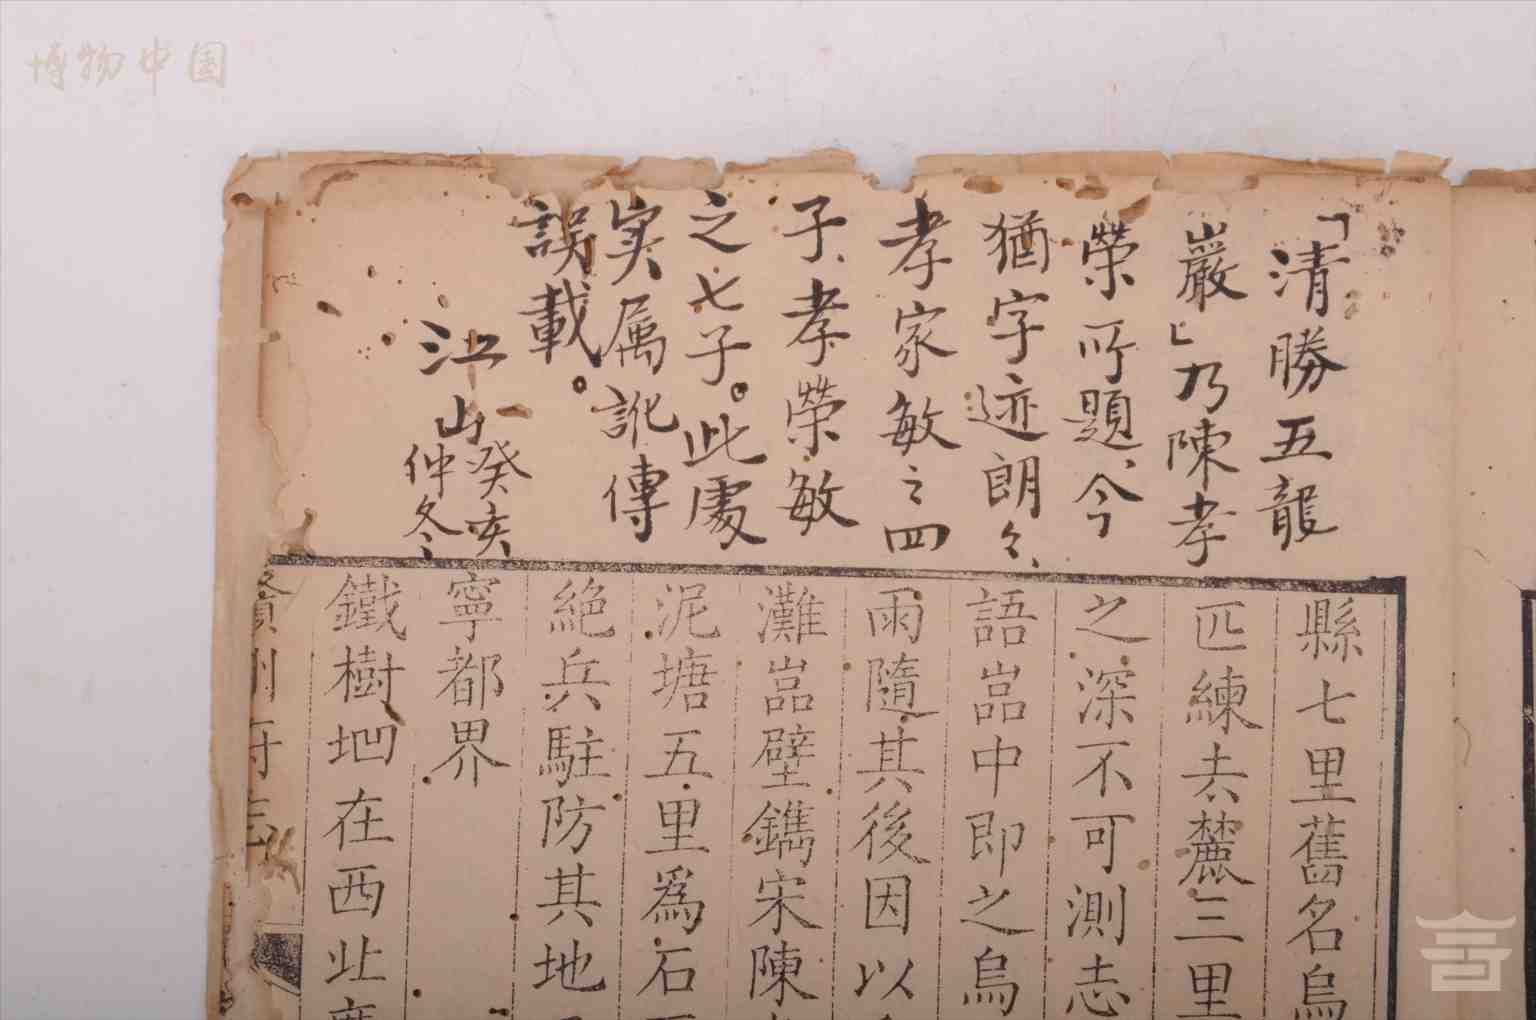 博物中国
「清勝五龍
巖」乃陳孝
榮所題、今
猶字迹朗々、
孝家敏之四
子、孝榮敏
之七子。此處
実属訛傳
誤載。
江山癸亥
仲冬
縣七里舊名烏
匹練去麓三里
之深不可測志
語嵓中即之烏
雨隨其後因以
灘嵓壁鐫宋陳
泥塘五里爲石
絶兵駐防其地
寧都界
鐵樹𡊠在西北
贛州府志